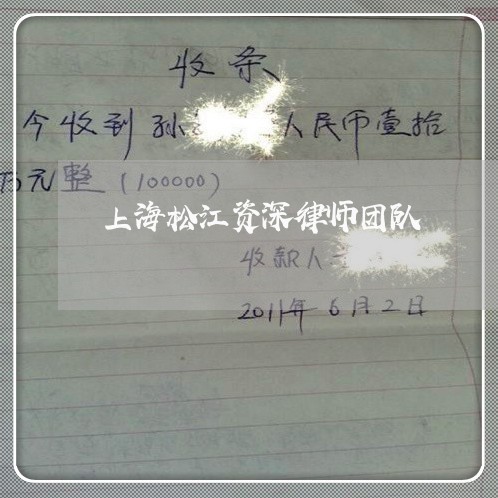 收条
今收到孙 人民币壹拾
万元整（100000）
上海松江资深律师团队
收款人
2011年6月2日